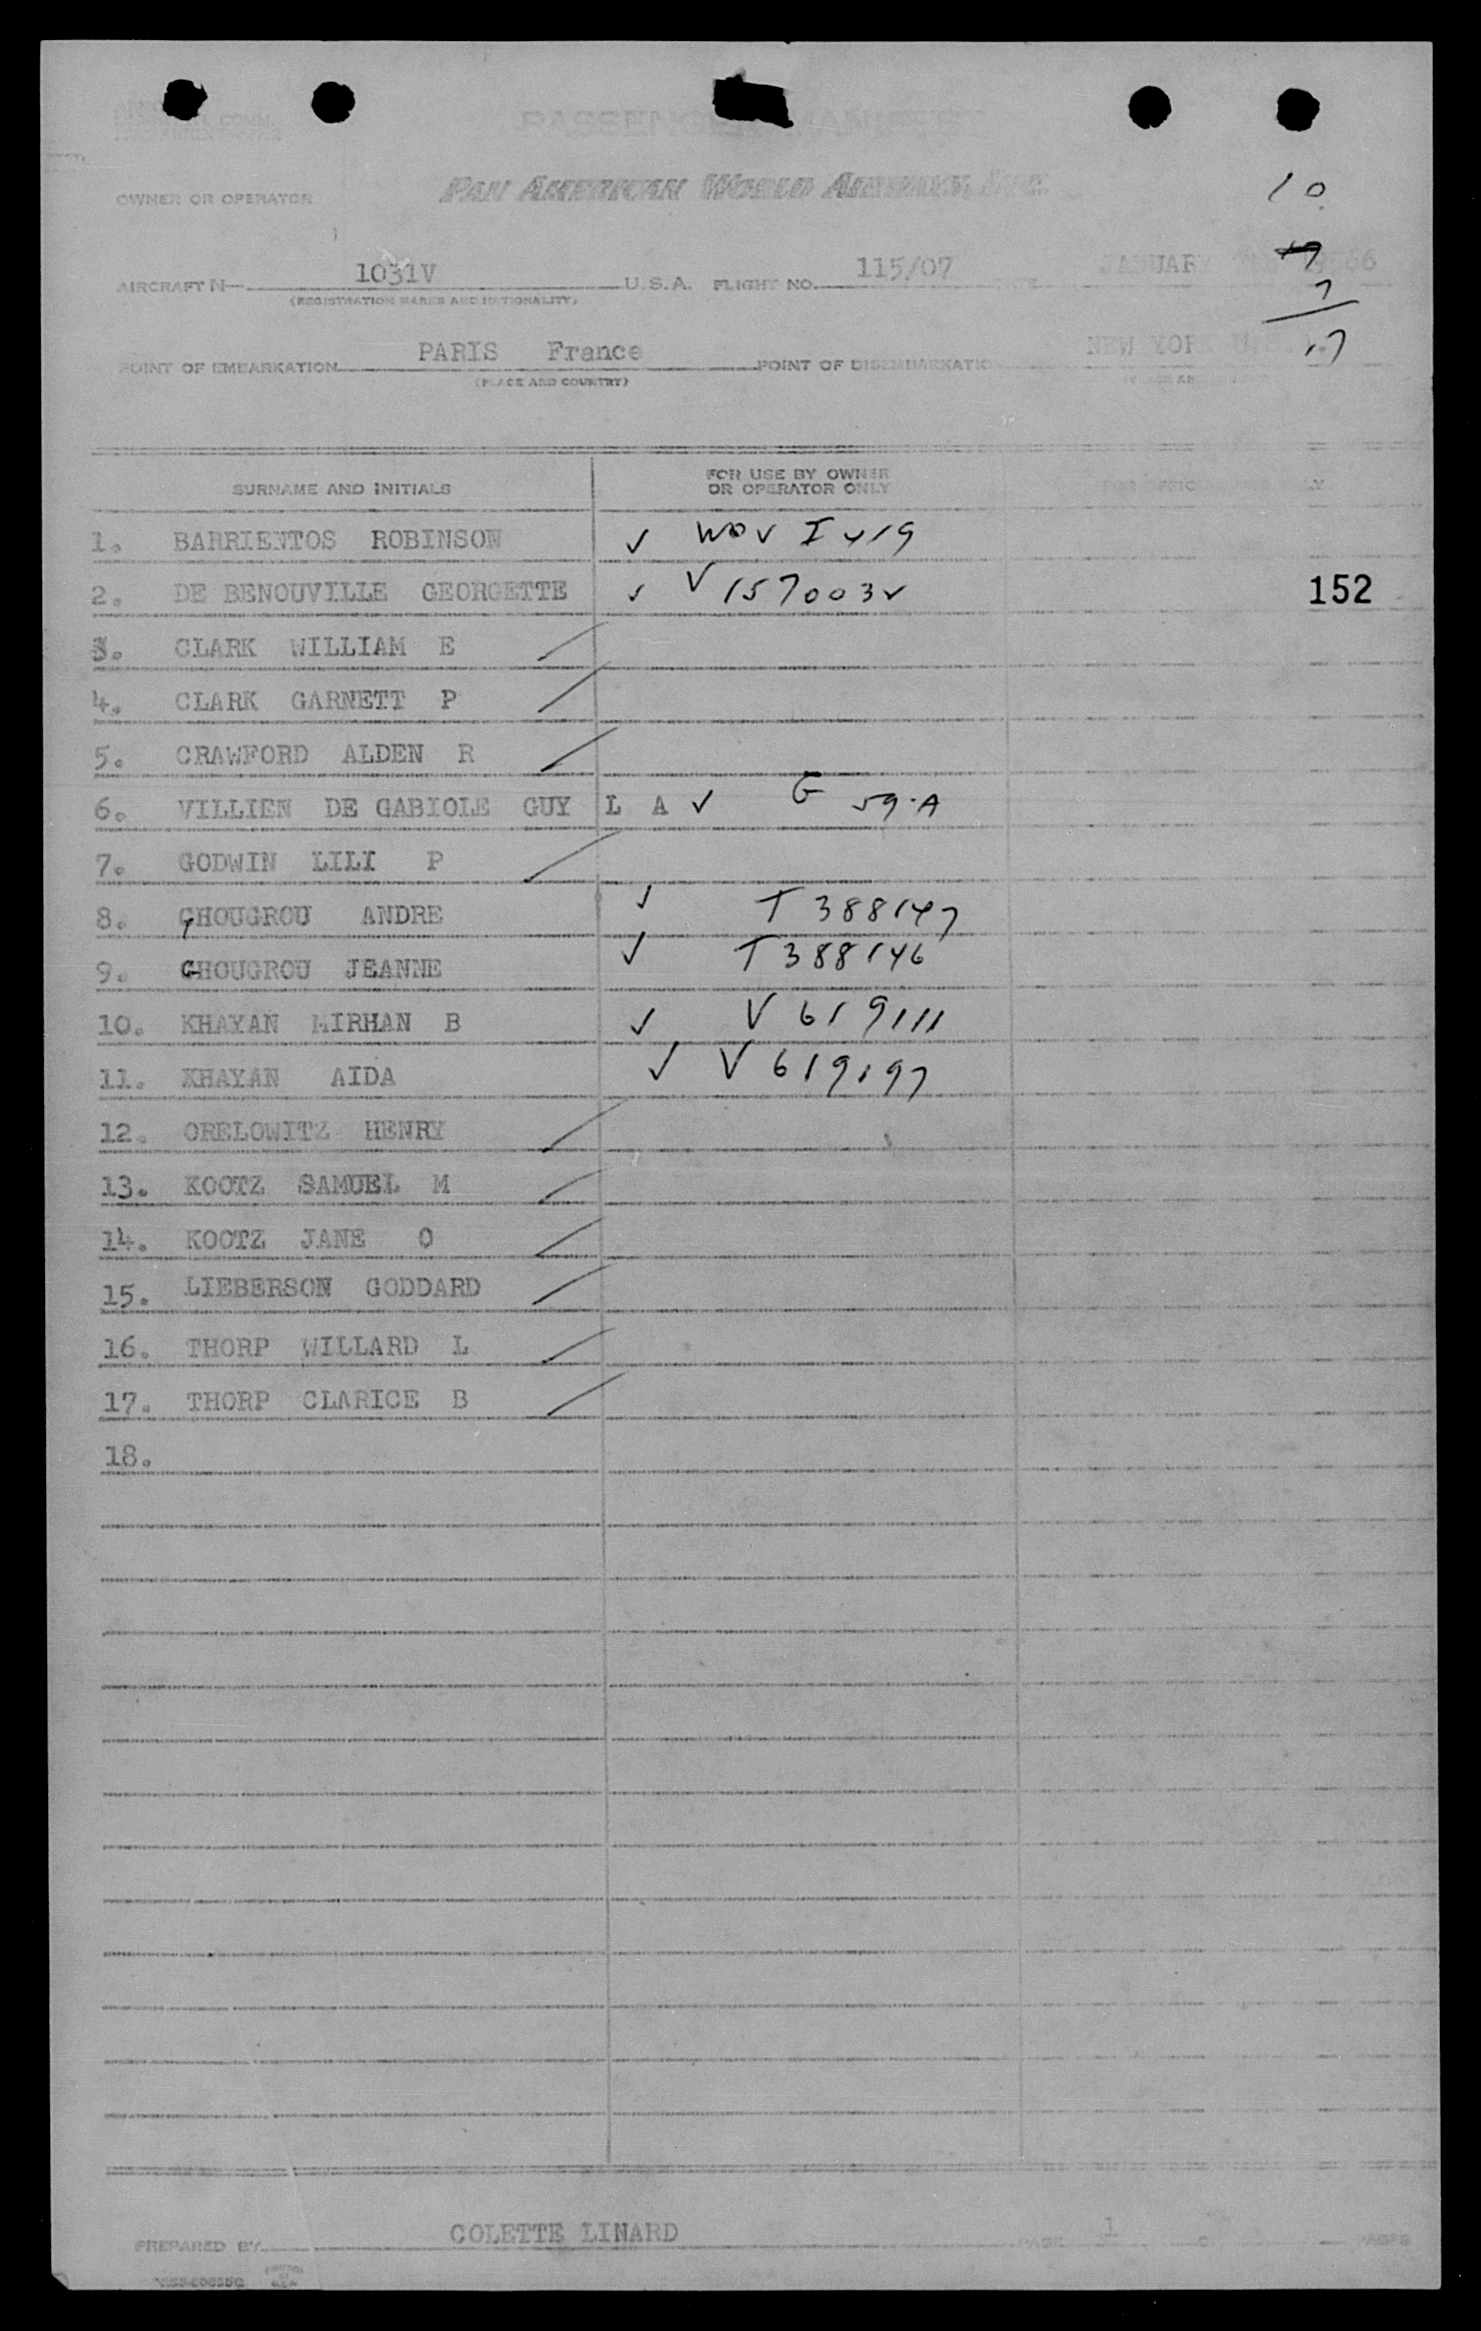 PASSENGER MANIFEST
OWNER OR OPERATOR PAN AMERICAN WORLD AIRWAYS, INC.
10
7
7
17
AIRCRAFT N— 1031V U.S.A. FLIGHT NO. 115/07 JANUARY
(REGISTRATION MARKS AND NATIONALITY)
POINT OF EMBARKATION PARIS France POINT OF DISEMBARKATION NEW YORK
(PLACE AND COUNTRY)
SURNAME AND INITIALS FOR USE BY OWNER OR OPERATOR ONLY
1. BARRIENTOS ROBINSON ✓
2. DE BENOUVILLE GEORGETTE ✓ V 157003
152
3. CLARK WILLIAM E
4. CLARK GARNETT P
5. CRAWFORD ALDEN R
6. VILLIEN DE GABIOLE GUY L A ✓ G 59·A
7. GODWIN LILI P
8. GHOUGROU ANDRE ✓ T 388147
9. GHOUGROU JEANNE ✓ T 388146
10. KHAYAN MIRHAN B ✓ V 619111
11. KHAYAN AIDA ✓ V 619197
12. ORELOWITZ HENRY
13. KOOTZ SAMUEL M
14. KOOTZ JANE O
15. LIEBERSON GODDARD
16. THORP WILLARD L
17. THORP CLARICE B
18.
PREPARED BY COLETTE LINARD PAGE 1 PAGES